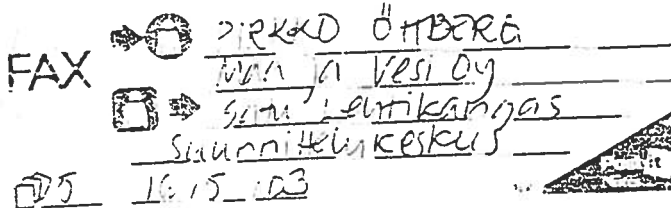 FAX PIRKKO ÖHBERG
Maa ja Vesi Oy
Satu Lehtikangas
Suunnittelukeskus
5